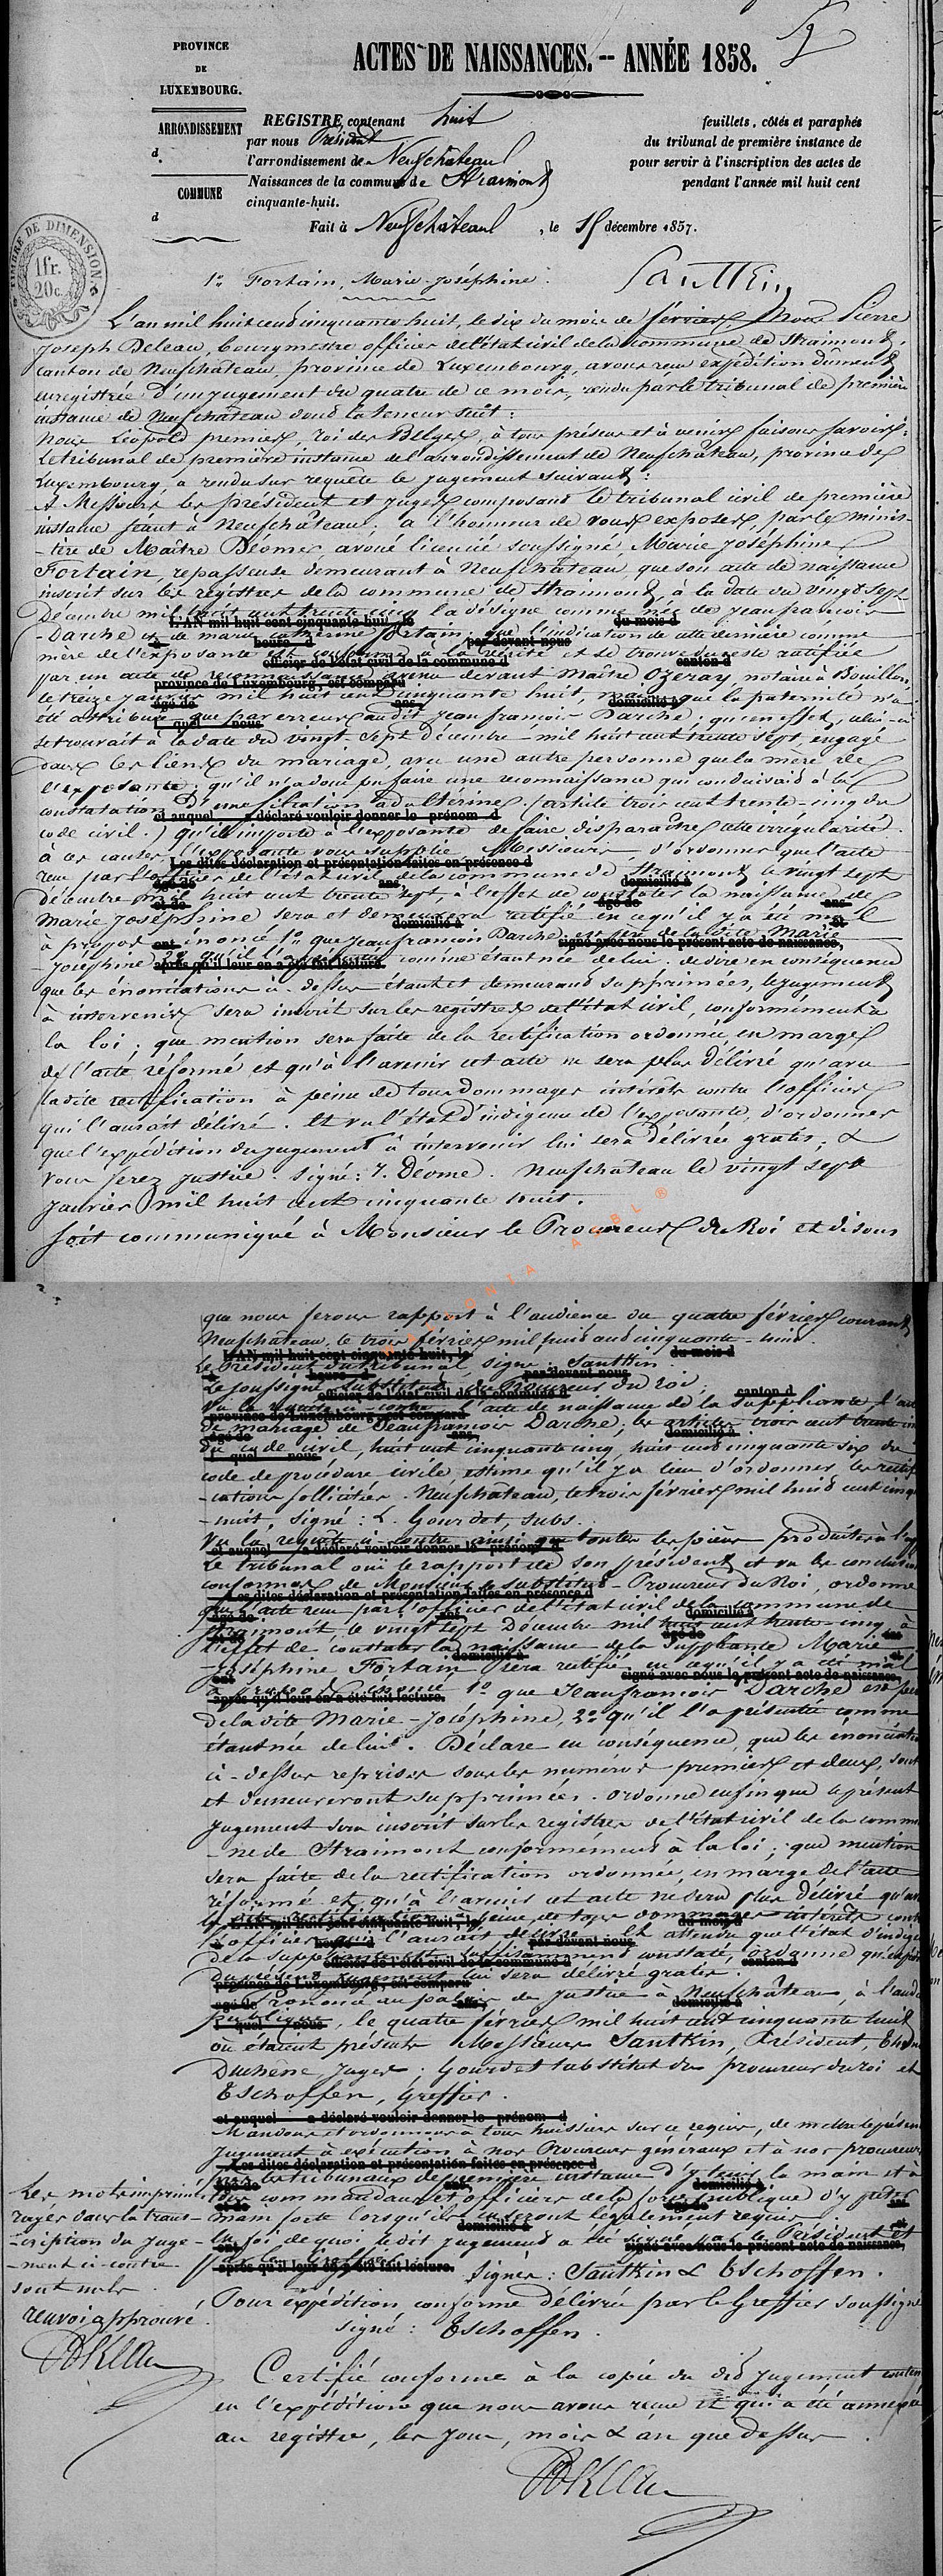 PROVINCE
DE
LUXEMBOURG.
ARRONDISSEMENT
d.
COMMUNE
d
ACTES DE NAISSANCES. -- ANNÉE 1858.
REGISTRE, contenant huit feuillets, côtés et paraphés
par nous Président du tribunal de première instance de
l'arrondissement de Neufchâteau pour servir à l'inscription des actes de
Naissances de la commune de Straimont pendant l'année mil huit cent
cinquante-huit.
Fait à Neufchâteau, le 15 décembre 1857.
TIMBRE DE DIMENSION
1fr.
20c.
1° Fortain, Marie-Joséphine. Santkin
L'an mil huit cent cinquante huit, le dix du mois de février, Nous Pierre
Joseph Deleau, bourgmestre officier de l'état civil de la commune de Straimont,
canton de Neufchâteau, province de Luxembourg, avons reçu expédition dûment
enregistrée d'un jugement du quatre de ce mois, rendu par le tribunal de première
instance de Neufchâteau dont la teneur suit :
Nous Léopold premier, roi des Belges, à tous présens et à venir faisons savoir :
Le tribunal de première instance de l'arrondissement de Neufchâteau, province de
Luxembourg, a rendu sur requête le jugement suivant :
A Messieurs les président et juges composant le tribunal civil de première
instance séant à Neufchâteau. a l'honneur de vous exposer, par le minis-
-tère de Maître Déomer avoué licencié soussigné, Marie Joséphine
Fortain, repasseuse demeurant à Neufchâteau que son acte de naissance
inscrit sur les registres de la commune de Straimont, à la date du vingt sept
Décembre mil huit cent trente cinq la désigne comme née de jean françois
L'AN mil huit cent cinquante huit, le du mois d
-Darche et de marie catherine Fortain, que l'indication de cette dernière comme
heure d par devant nous
mère de l'exposante est conforme à la vérité et se trouve du reste ratifiée
officier de l'état civil de la commune d canton d
par un acte de reconnaissance avenu devant Maître Ozeray, notaire à Bouillon,
province de Luxembourg, est comparu
le treize janvier mil huit cent cinquante huit, mais que la paternité n'a
âgé de ans, domicilié à
été attribuée que par erreur au dit jean françois Darche ; qu'en effet, celui-ci
quel nous
se trouvait à la date du vingt sept décembre mil huit cent trente sept, engagé
dans les liens du mariage, avec une autre personne que la mère de
l'exposante ; qu'il n'a donc pu faire une reconnaissance qui conduisait à la
constatation d'une filiation adultérine. (article trois cent trente-cinq du
et auquel a déclaré vouloir donner le prénom d
code civil.) qu'il importe à l'exposante de faire disparaître cette irrégularité.
à ces causes, l'exposante vous supplie Messieurs d'ordonner que l'acte
Les dites déclaration et présentation faites en présence d
reçu par l'officier de l'état civil de la commune de Straimont le vingt sept
âgé de ans, domicilié à
décembre mil huit cent trente sept, à l'effet de constater la naissance de
et de âgé de ans
Marie Joséphine sera et demeurera rectifié en ce qu'il y a été mal
domicilié à et
à propos énoncé 1° que Jean françois Darche est père de la dite Marie
ont signé avec nous le présent acte de naissance,
-Joséphine 2° qu'il l'a présentée comme étant née de lui. de dire en conséquence
après qu'il leur en a été fait lecture.
que les énonciations ci-dessus étant et demeurant supprimées, le jugement
à intervenir sera inscrit sur les registres de l'état civil, conformément à
la loi ; que mention sera faite de la rectification ordonnée, en marge
de l'acte réformé et qu'à l'avenir cet acte ne sera plus délivré qu'avec
la dite rectification à peine de tous dommages intérêts contre l'officier
qui l'aurait délivré. Et vu l'état d'indigence de l'exposante, d'ordonner
que l'expédition du jugement à intervenir lui sera délivrée gratis ; &
vous ferez justice. Signé : J. Déome. Neufchâteau le vingt sept
janvier mil huit cent cinquante huit.
Soit communiqué à Monsieur le Procureur du Roi et disons
que nous ferons rapport à l'audience du quatre février courant
Neufchâteau, le trois février mil huit cent cinquante-huit.
L'AN mil huit cent cinquante huit, le du mois d
Le Président du tribunal, signé : Santkin.
heure d par devant nous
Le soussigné substitut du Procureur du Roi,
officier de l'état civil de la commune d canton d
Vu la requête ci-contre, l'acte de naissance de la suppliante, l'acte
province de Luxembourg, est comparu
de mariage de Jean françois Darche ; les articles trois cent trente cinq
âgé de ans, domicilié à
du code civil, huit cent cinquante cinq, huit cent cinquante six du
quel nous
code de procédure civile, estime qu'il y a lieu d'ordonner les rectifi-
-cations sollicitées. Neufchâteau, le trois février mil huit cent cinqu
-huit, signé : L. Gourdet, subs.
Vu la requête ci-contre ainsi que toutes les pièces produites à l'app
et auquel a déclaré vouloir donner le prénom d
Le tribunal ouï le rapport de son président et vu les conclusions
conformes de Monsieur le substitut-Procureur du Roi, ordonne
Les dites déclaration et présentation faites en présence d
que l'acte reçu par l'officier de l'état civil de la commune de
âgé de ans, domicilié à
Straimont le vingt sept Décembre mil huit cent trente-cinq à
et de âgé de ans
l'effet de constater la naissance de la suppliante Marie
domicilié à et
-Joséphine Fortain sera rectifié en ce qu'il y a été mal
ont signé avec nous le présent acte de naissance,
à propos énoncé 1° que Jean françois Darche est père
après qu'il leur en a été fait lecture.
de la dite Marie-Joséphine, 2° qu'il l'a présentée comme
étant née de lui. Déclare en conséquence, que les énonciations
ci-dessus reprises sous les numéros premier et deux, sont
et demeureront supprimées. ordonne enfin que le présent
jugement sera inscrit sur les registres de l'état civil de la commu
-ne de Straimont conformément à la loi ; que mention
sera faite de la rectification ordonnée, en marge de l'acte
réformé et qu'à l'avenir cet acte ne sera plus délivré qu'avec
la dite rectification à peine de tous dommages intérêts contre
L'AN mil huit cent cinquante huit, le du mois d
l'officier qui l'aurait délivré. Et attendu que l'état d'indigence
heure d par devant nous
de la suppliante est suffisamment constaté, ordonne qu'expédition
officier de l'état civil de la commune d canton d
du présent jugement lui sera délivré gratis.
province de Luxembourg, est comparu
Prononcé au palais de justice à Neufchâteau, à l'audience
âgé de ans, domicilié à
publique, le quatre février mil huit cent cinquante huit
quel nous
où étaient présents Messieurs Santkin, Président,
Duchêne, Juges ; Gourdet substitut du procureur du roi et
Eschoffen, Greffier.
et auquel a déclaré vouloir donner le prénom d
Mandons et ordonnons à tous huissiers sur ce requis, de mettre le présent
jugement à exécution à nos Procureurs généraux et à nos procureurs
Les dites déclaration et présentation faites en présence d
près les tribunaux de première instance d'y tenir la main et à
âgé de ans, domicilié à
tous commandants et officiers de la force publique d'y prêter
et de âgé de ans
main forte lorsqu'ils en seront légalement requis.
domicilié à et
En foi de quoi le dit jugement a été signé par le Président et
ont signé avec nous le présent acte de naissance,
après qu'il leur en a été fait lecture.
Signés : Santkin & Eschoffen.
Pour expédition conforme délivrée par le Greffier soussigné
signé : Eschoffen.
Certifié conforme à la copie du dit jugement contenu
en l'expédition que nous avons reçue et qui a été annexée
au registre, les jour, mois & an que dessus.
Les mots imprimés
rayés dans la trans-
-cription du juge-
-ment ci-contre
sont nuls.
renvoi approuvé.